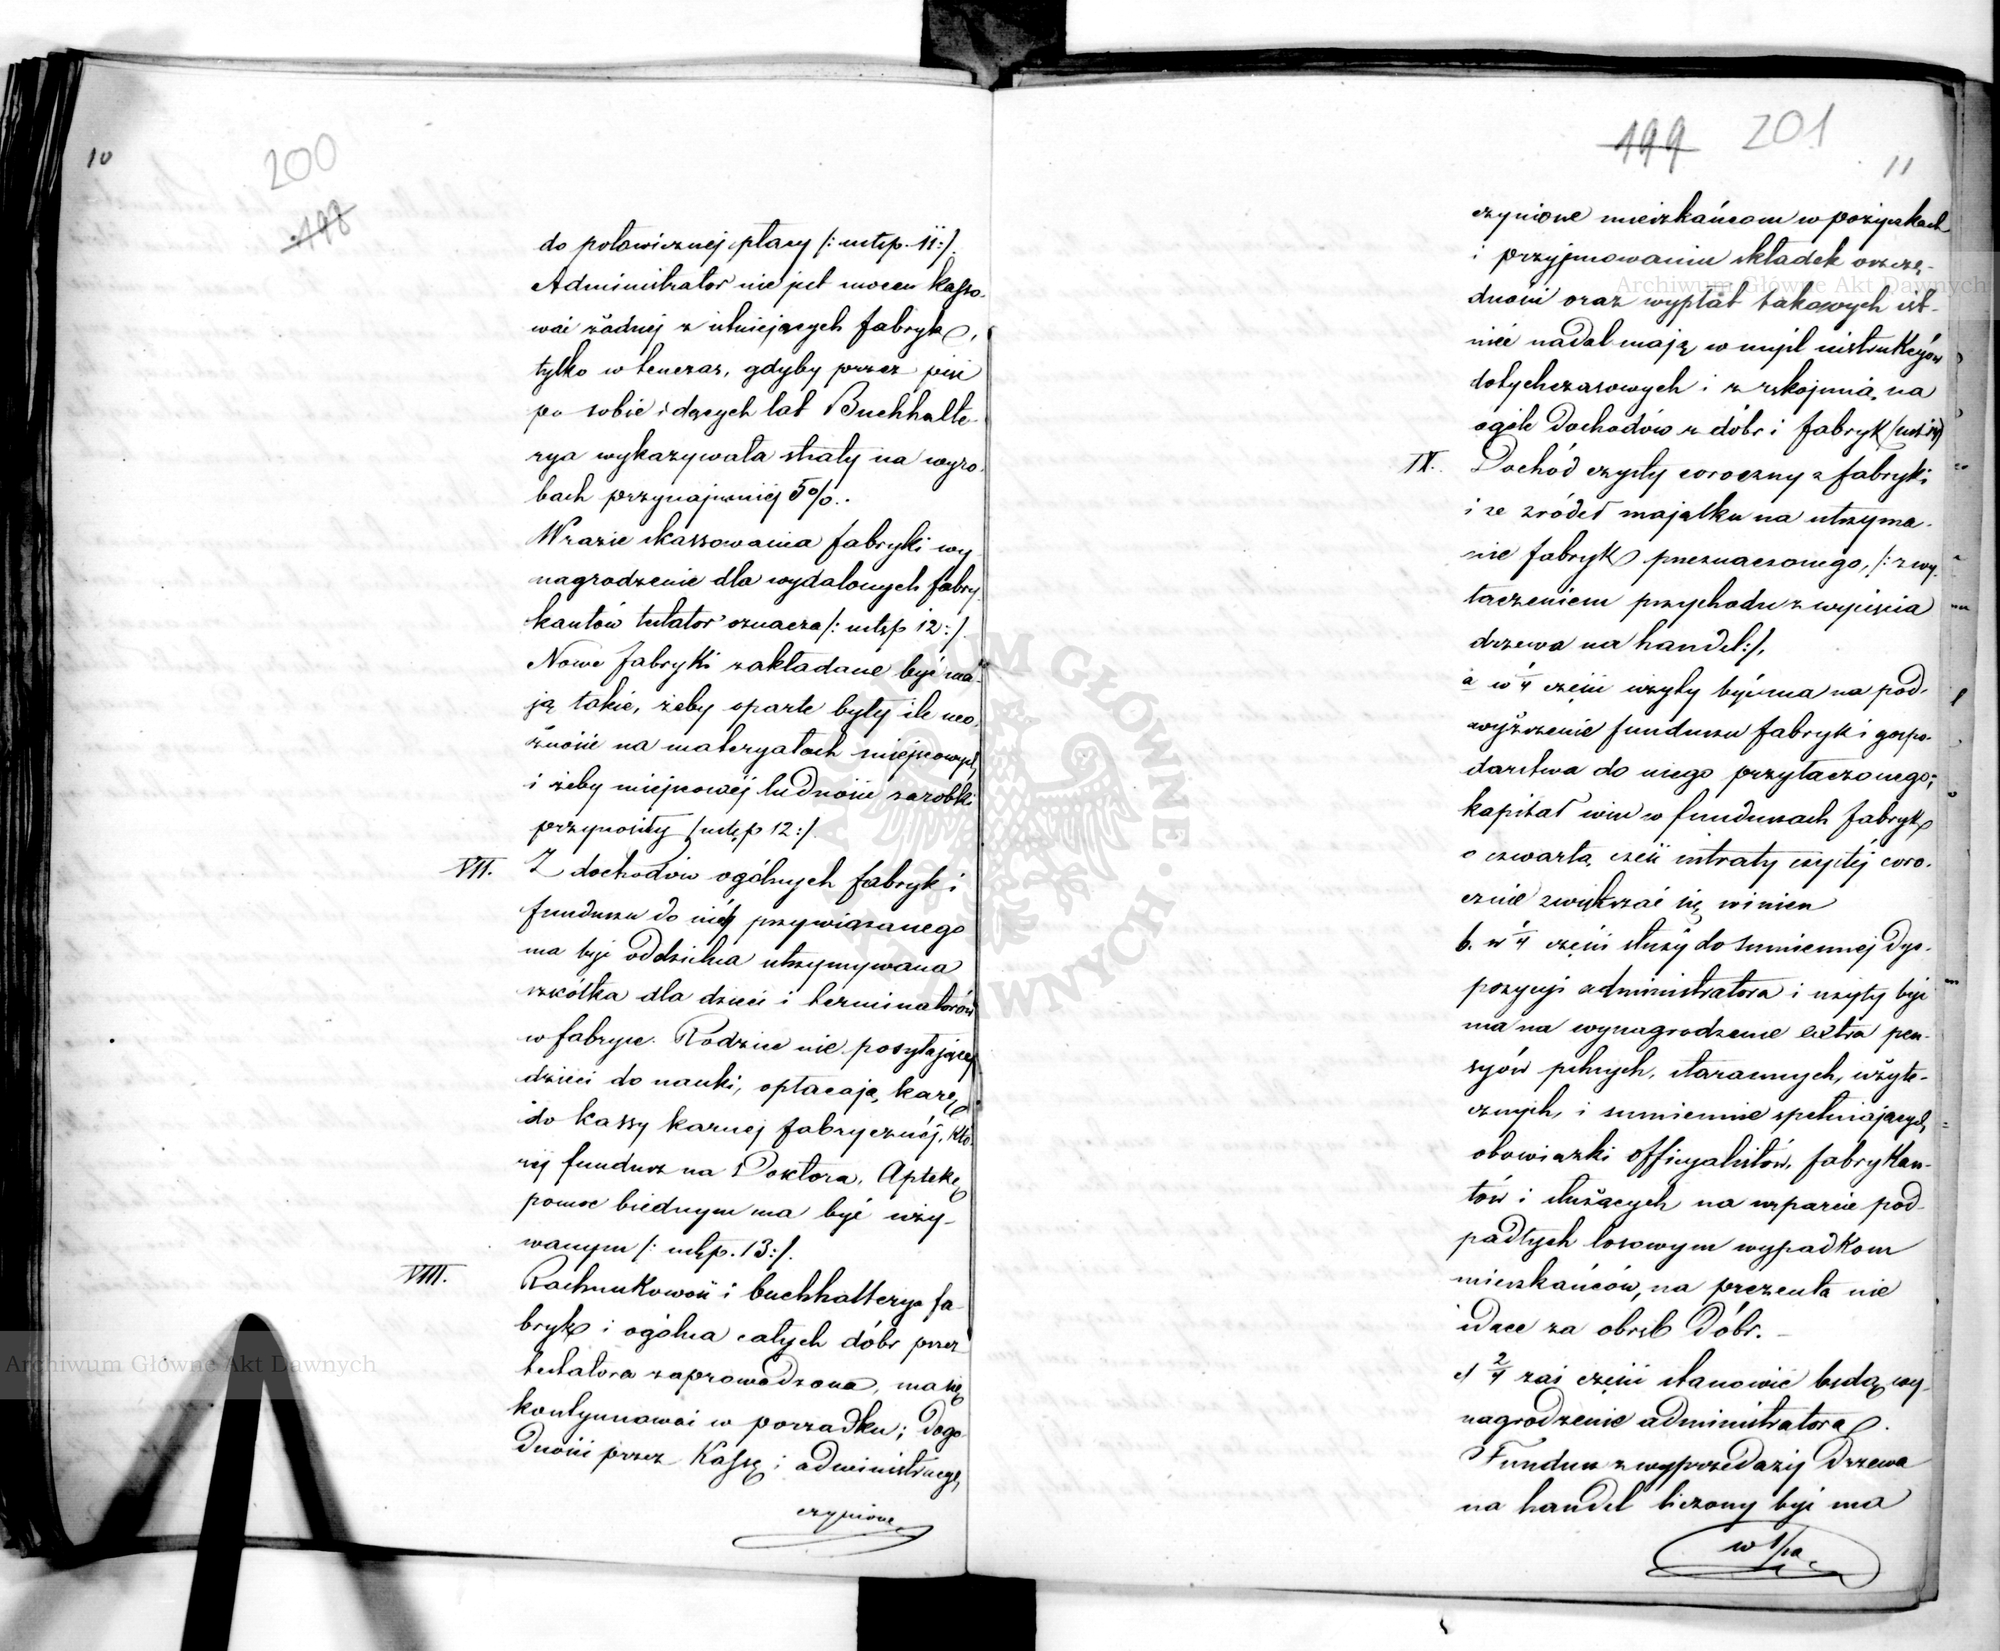 10
200
198
do połowicznej płacy /: ustęp. 11:/.
Administrator nie jest mocen kasso-
wać żadnej z istniejących fabryk,
tylko w tenczas, gdyby przez pięć
po sobie idących lat Buchhalte-
rya wykazywała straty na wyro-
bach przynajmniej 5%.
W razie skassowania fabryki wy-
nagrodzenie dla wydalonych fabry-
kantów tutator oznacza /: ustęp 12:/.
Nowe fabryki zakładane być ma-
ją takie, żeby oparte były ile mo-
żności na materyałach miejscowych,
i żeby miejscowéj ludności zarobki
przynosiły /ustęp 12:/.
VII. Z dochodów ogólnych fabryk i
funduszu do nich przywiązanego
ma być oddzielna utrzymywana
szkółka dla dzieci i terminatorów
w fabryce. Rodzice nie posyłający
dzieci do nauki, opłacają karę
do kassy karnej fabrycznéj, któ-
réj fundusz na Doktora, Aptekę
pomoc biednym ma być uży-
wanym /: ustęp. 13:/.
VIII. Rachunkowość i buchhalterya fa-
bryk i ogólna całych dóbr przez
tutatora zaprowadzona, ma się
kontynuować w porządku; dogo-
dności przez Kassę i administracyę,
czynione
199 201
11
czynione mieszkańcom w pożyczkach
i przyjmowaniu składek oszczę-
dności oraz wypłat takowych ist-
nieć nadal mają w myśl instrukcyów
dotychczasowych i z rękojmią na
ogóle dochodów z dóbr i fabryk
IX. Dochód czysty coroczny z fabryki
i ze źródeł majątku na utrzyma-
nie fabryk przeznaczonego, /: z wy-
łączeniem przychodu z wycięcia
drzewa na handel:/,
a w 1/4 części użyty być ma na pod-
wyższenie funduszu fabryk i gospo-
darstwa do niego przyłączonego;
kapitał więc w funduszach fabryk
o czwartą część intraty czystéj coro-
cznie zwiększać się winien
b. w 1/4 części służy do sumiennej dys-
pozycyi administratora i użyty być
ma na wynagrodzenie extra pen-
syów pilnych, starannych, użyte-
cznych, i sumiennie spełniających
obowiązki officyalistów, fabrykan-
tów i służących na wsparcie pod-
padłych losowym wypadkom
mieszkańców, na prezenta nie
idące za obręb dóbr. –
c/ 2/4 zaś części stanowić będą wy-
nagrodzenie administratora.
Fundusz z wyprzedaży drzewa
na handel liczony być ma
Archiwum Główne Akt Dawnych
Archiwum Główne Akt Dawnych
ARCHIWUM GŁÓWNE AKT DAWNYCH